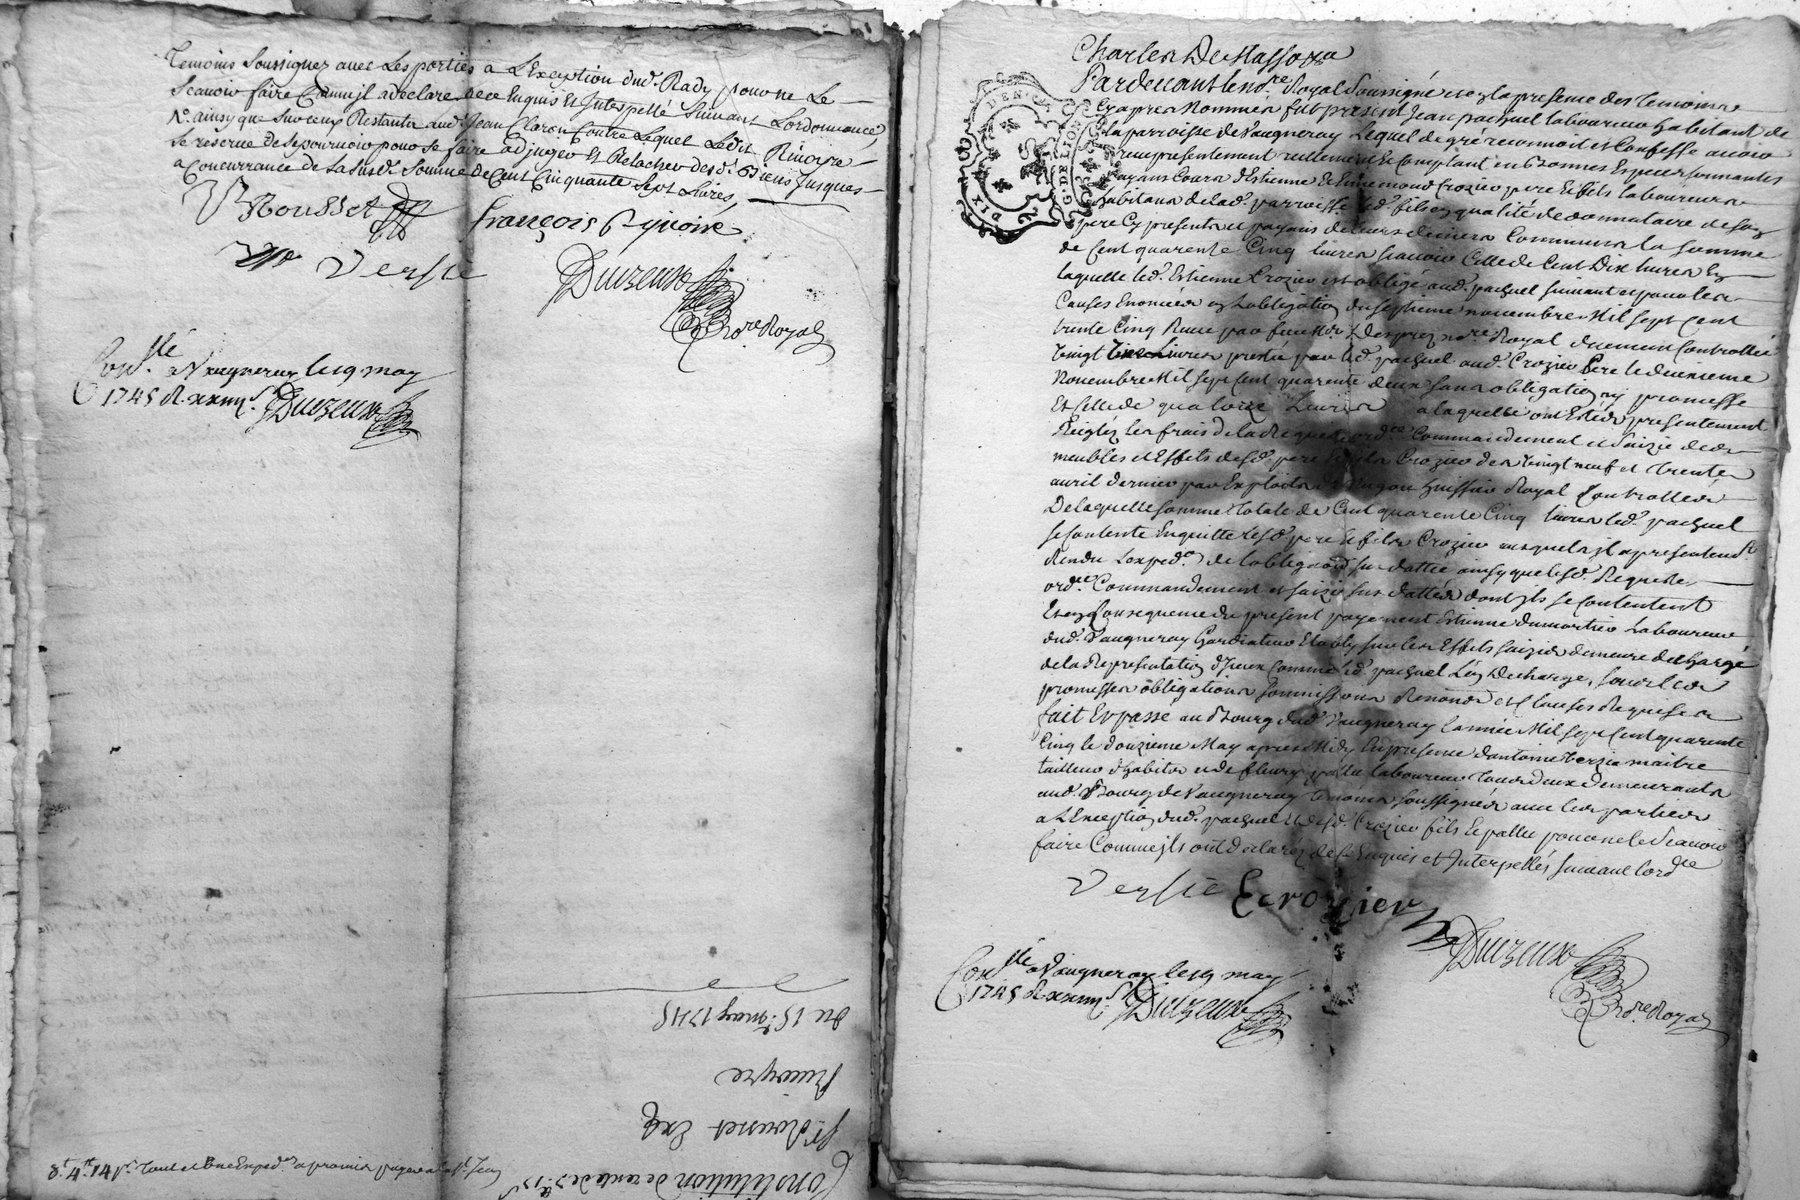 Temoins Soussignez avec Les parties a L'Exception dud. Rady pour ne Le
Scavoir faire Comme jl a declaré de ce Enquis Et Interpellé Suivant Lordonnance,
ainsy que Sur ceux Restants aud. Jean Claron Contre Lequel Ledit Rivoyre
se reserve de se pourvoir pour se faire adjuger Et Relacher desd. Biens Jusques
a Concurrance de La susd. Somme de Cent Cinquante Sept Livres,
Rousset
françois
Versie
Duizeux
No.re Royal
Con.llé a Vaugneray le 19 may
1745 R. Duizeux
du 15.e may 1745
Rivoyre
Sr. Rousset
Constitution de rente de
Charles De Massoxa
Pardevant le no.re Royal Soussigné et en la presence des temoins
Cy apres Nommés fut present Jean pachuel laboureur habitant de
la parroisse de Vaugneray Lequel de gré reconnoit et Confesse avoir
receu presentement reellement et Comptant en bonnes Especes sonnantes
ayans Cours d'Estienne Et Ennemond Crozier pere et fils laboureurs
habitans de lad. parroisse led. fils en qualité de donnataire de son
pere Cy presents et payans de leurs deniers Communs la somme
de Cent quarente Cinq livres scavoir Celle de Cent Dix livres En
laquelle led. Estienne Crozier est obligé aud. pachuel suivant et pour les
Causes Enoncées en l'obligation du septieme novembre Mil sept cent
trente Cinq Receue par no.re Royal duement Controllée
vingt livres prestés par led. pachuel aud. Crozier Pere le deuxieme
Novembre Mil sept cent quarente deux sans obligation ny promesse
Et Celle de quatorze Livres a laquelle ont Estés presentement
Reiglez les frais de la Requete ord.ce Commandement et saizie de
meubles et Effets desd. pere et fils Crozier des vingt neuf et trente
avril dernier par Exploits de huissier Royal Controllés
De laquelle somme totale de Cent quarente Cinq livres led. pachuel
se Contente Enquitte lesd. pere et fils Crozier ausquels jl a presentem.t
Rendu l'exped.on de lobligaon sus dattée ainsy que lesd. Requete
ord.ce Commandement et saizie sus dattés dont jls se Contentent
Et en Consequence du present payement Estienne dumortier Laboureur
dud. Vaugneray Gardiateur Etably sur les Effets saizies demeure dechargé
de la Representation d'Iceux Comme led. pachuel l'En decharge, sous les
promesses obligations soumissions Renonon et Clauses Requises
fait Et passé au Bourg dud. Vaugneray l'année Mil sept Cent quarente
Cinq le douzieme May apres Midy En presence d'antoine Versie maitre
tailleur d'habits et de fleury pallu laboureur tous deux demeurants
aud. Bourg de Vaugneray temoins soussignés avec les parties
a l'Exception dud. pachuel et desd. Crozier fils Et pallu pour ne le Scavoir
faire Comme jls ont declarez de ce Enquis et Interpellés suivant lord.ce
Versie Ecrozier
Duizeux
No.re Royal
Con.llé a Vaugneray le 19 may
1745 R. Duizeux